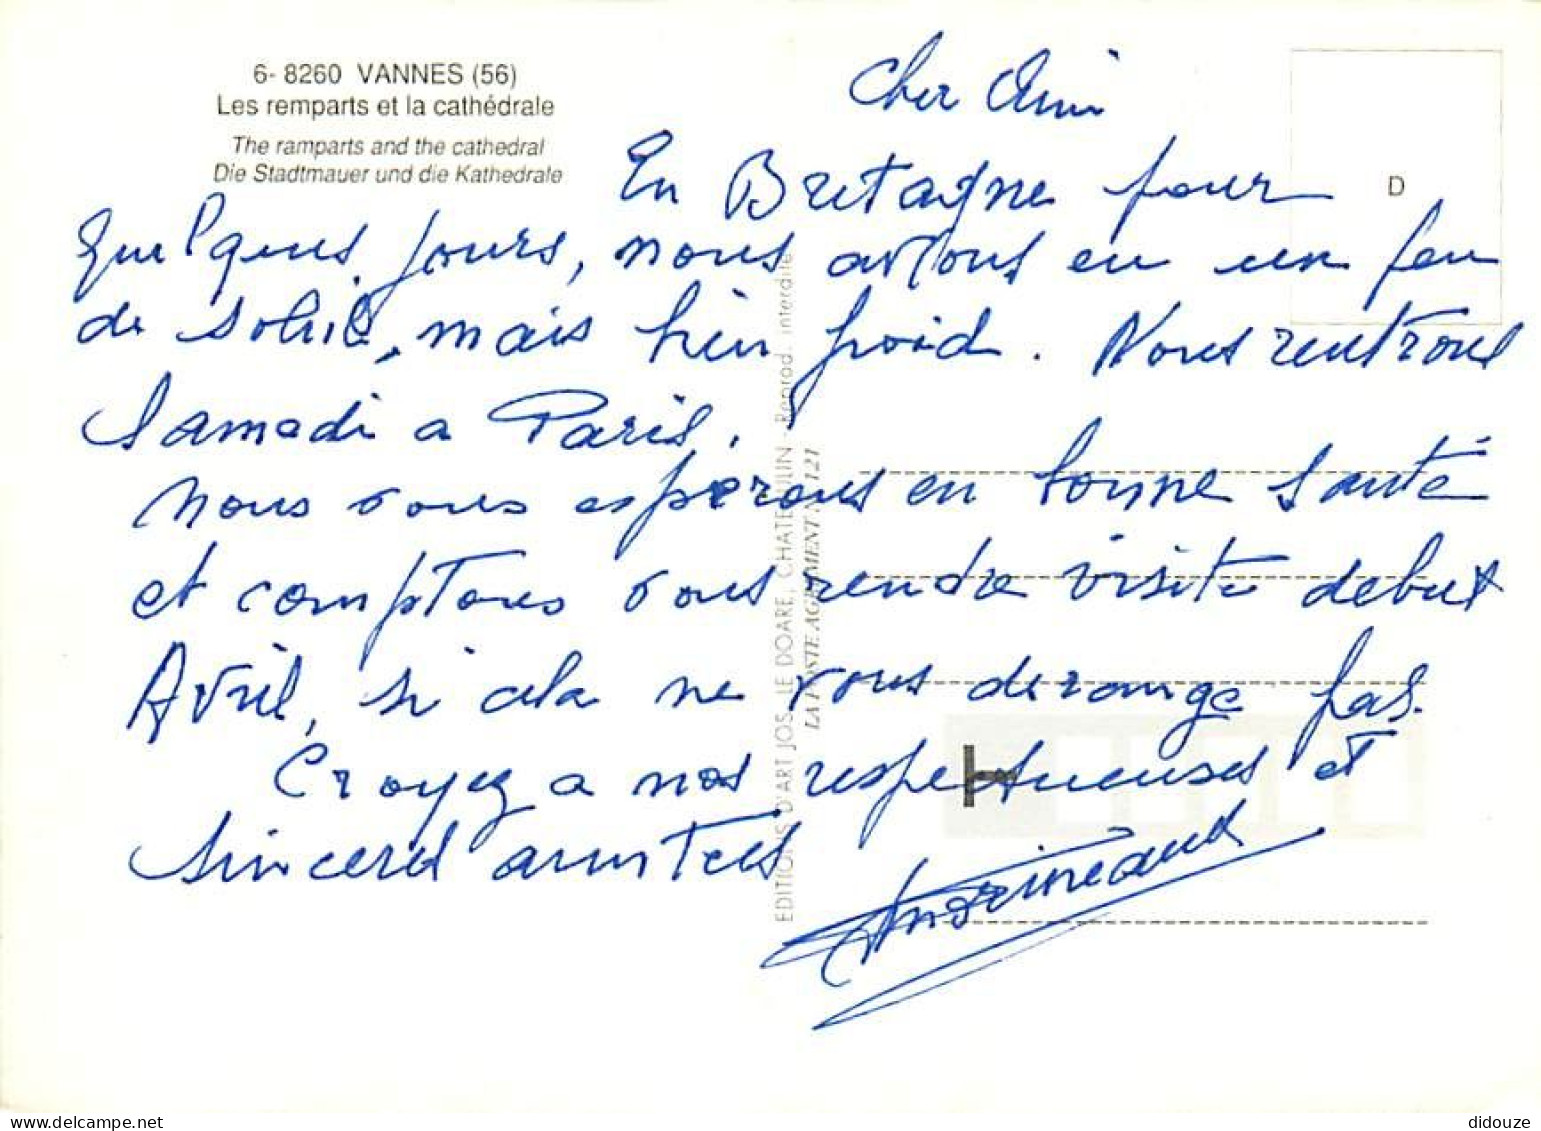 6- 8260 VANNES (56)
Les remparts et la cathédrale
The ramparts and the cathedral
Die Stadtmauer und die Kathedrale
D
Cher Ami
En Bretagne pour
quelques jours, nous avons eu un peu
de soleil, mais bien froid. Nous rentrons
Samedi a Paris.
Nous vous esperons en bonne santé
et comptons vous rendre visite debut
Avril, si cela ne vous derange pas.
Croyez a nos respectueuses et
sinceres amitees
EDITIONS D'ART JOS LE DOARE, CHATEAULIN - Reprod. interdite
LA POSTE AGREMENT N° 121
delcampe.net
didouze